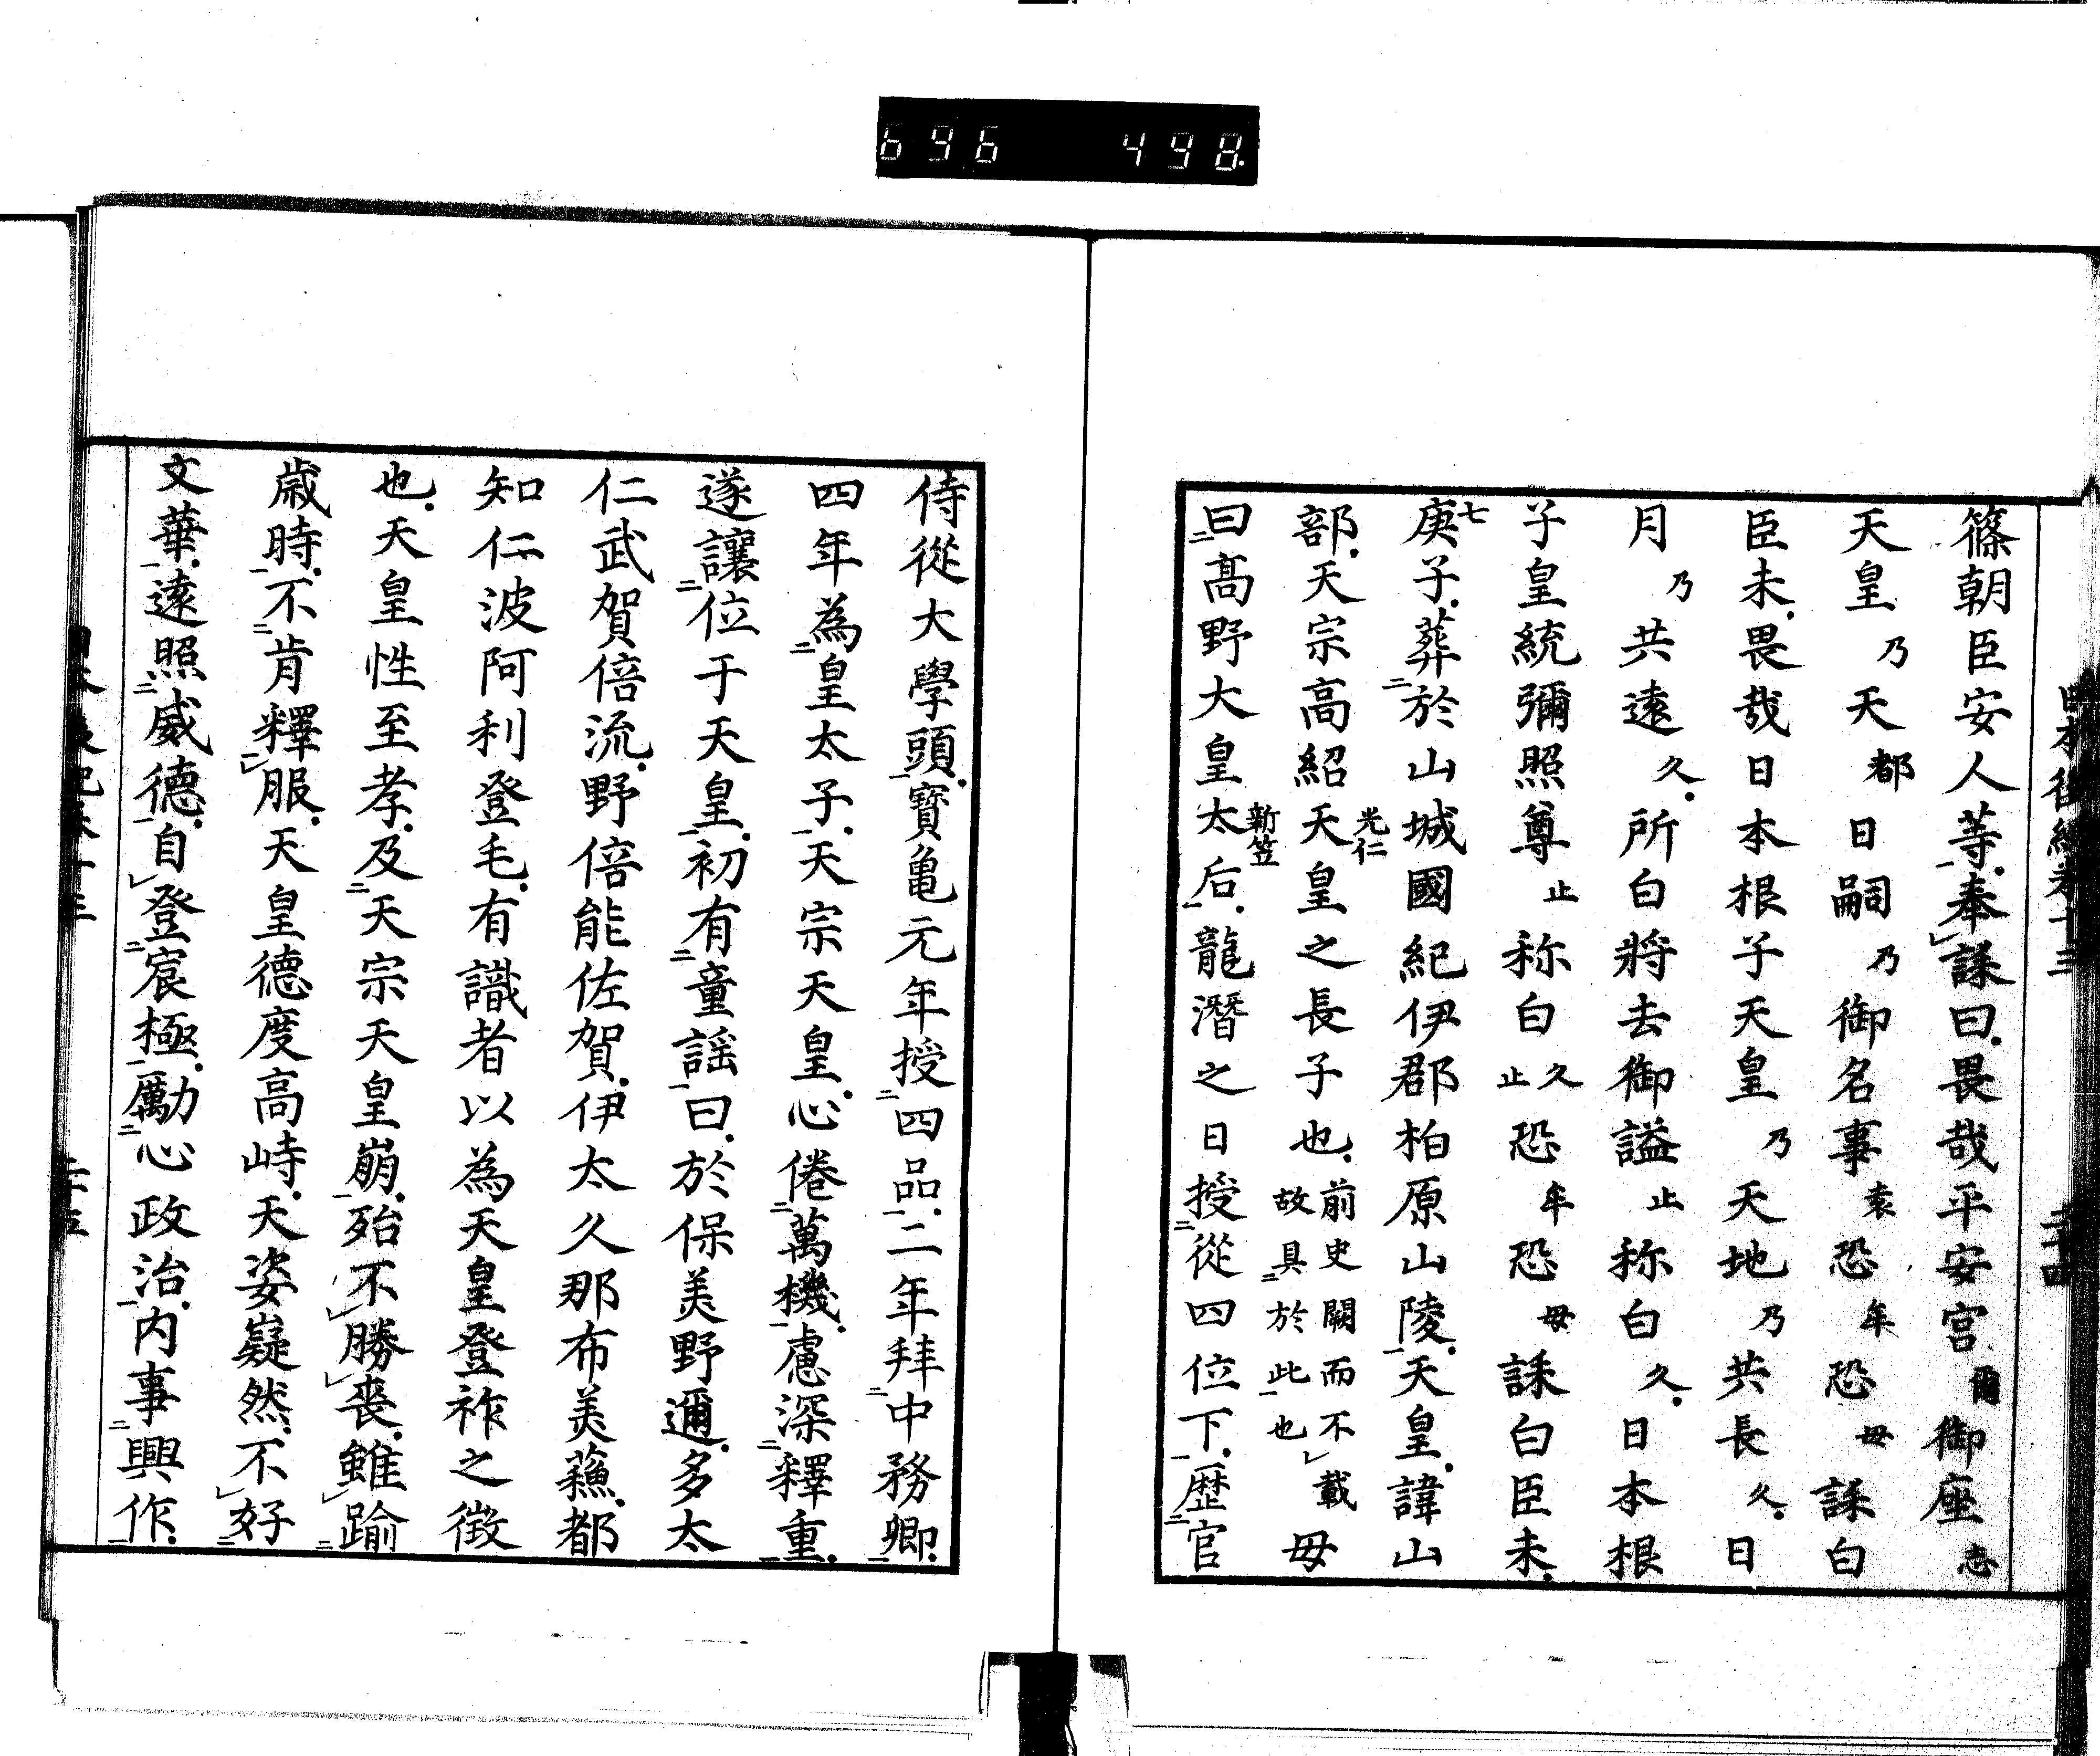 696 498
篠朝臣安人等奉誄曰畏哉平安宮爾御座志
天皇乃天都日嗣乃御名事袁恐牟恐毋誄白
臣未畏哉日本根子天皇乃天地乃共長久日
月乃共遠久所白將去御謚止称白久日本根
子皇統彌照尊止称白久止恐牟恐毋誄白臣未
七
庚子葬於山城國紀伊郡柏原山陵天皇諱山
部天宗高紹天皇之長子也前史闕而不載故具於此也毋
光仁
曰髙野大皇太后龍潛之日授從四位下歴官
新笠
侍從大學頭寶亀元年授四品二年拜中務卿
四年為皇太子天宗天皇心倦萬機慮深釋重
遂讓位于天皇初有童謡曰於保美野邇多太
仁武賀倍流野倍能佐賀伊太久那布美蘓都
知仁波阿利登毛有識者以為天皇登祚之徴
也天皇性至孝及天宗天皇崩殆不勝喪雖踰
歳時不肯釋服天皇德度高峙天姿嶷然不好
文華遠照威德自登宸極勵心政治内事興作